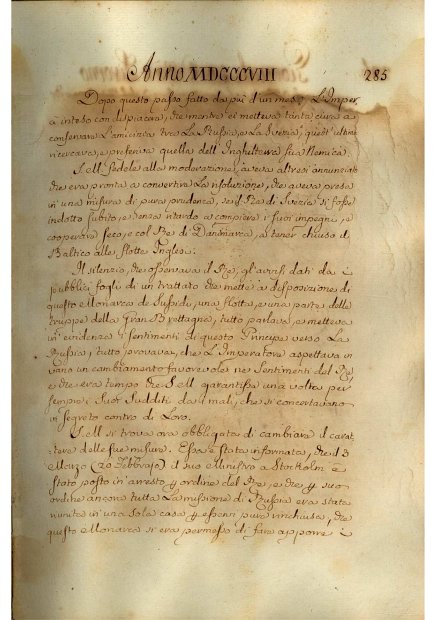 Anno MDCCCVIII 285
Dopo questo passo fatto da più d'un mese, L'Imper.
à inteso con dispiacere, che mentre ei metteva tanta cura a
conservare L'amicizia tra La Russia, e La Svezia, quest'ultima
ricercava, e preferiva quella dell'Inghilterra sua Nemica.
S. M. fedele alla moderazione, aveva altresì annunciato
che era pronta a convertire La risoluzione, che aveva presa
in una misura di pura prudenza, se il Re di Svezia si fosse
indotto subito, e senza ritardo a compiere i suoi impegni, e
cooperare seco, e col Re di Danimarca, a tener chiuso il
Baltico alle flotte Inglesi.
Il silenzio, che osservava il Re, gl'avvisi dati da i
pubblici fogli di un trattato che mette a disposizione di
questo Monarca de Sussidj, una flotta, e una parte delle
truppe della Gran Brettagna, tutto parlava, e metteva
in evidenza i sentimenti di questo Principe verso La
Russia, tutto provava, che L'Imperatore aspettava in
vano un cambiamento favorevole ne Sentimenti del Re,
e che era tempo che S. M. garantisse una volta per
sempre i Suoi Sudditi da i mali, che si concertavano
in segreto contro di Loro.
S. M. si trova ora obbligata di cambiare il carat
tere delle sue misure. Essa è stata informata, che il 3
Marzo (20 Febbrajo) il suo Ministro a Stockolm è
stato posto in arresto p ordine del Re, e che p suo
ordine ancora tutta La missione di Russia era stata
riunita in una sola casa p esservi pure rinchiusa, che
questo Monarca si era permesso di fare apporre i